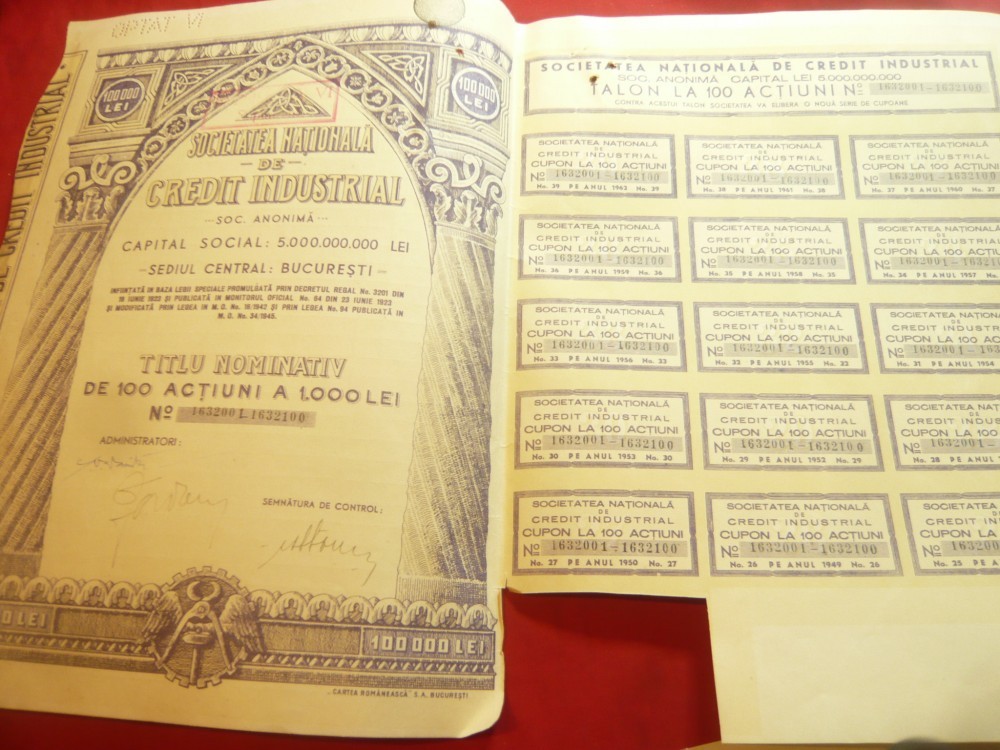 OPTAT VI
DE CREDIT INDUSTRIAL
100000 LEI
100000 LEI
SOCIETATEA NAȚIONALĂ
— DE —
CREDIT INDUSTRIAL
— SOC. ANONIMĂ —
CAPITAL SOCIAL: 5.000.000.000 LEI
— SEDIUL CENTRAL: BUCUREȘTI —
ÎNFIINȚATĂ ÎN BAZA LEGII SPECIALE PROMULGATĂ PRIN DECRETUL REGAL No. 3201 DIN
ȘI MODIFICATĂ PRIN LEGEA IN M. O. No. 16/1942 ȘI PRIN LEGEA No. 94 PUBLICATĂ IN
M. O. No. 34/1945.
TITLU NOMINATIV
DE 100 ACȚIUNI A 1.000 LEI
No 1632001-1632100
ADMINISTRATORI:
SEMNĂTURA DE CONTROL:
LEI
100000 LEI
„CARTEA ROMÂNEASCĂ" S.A. BUCUREȘTI
SOCIETATEA NAȚIONALĂ DE CREDIT INDUSTRIAL
SOC. ANONIMĂ CAPITAL LEI 5.000.000.000
TALON LA 100 ACȚIUNI No 1632001-1632100
CONTRA ACESTUI TALON SOCIETATEA VA ELIBERA O NOUĂ SERIE DE CUPOANE
SOCIETATEA NAȚIONALĂ
DE
CREDIT INDUSTRIAL
CUPON LA 100 ACȚIUNI
No 1632001-1632100
No. 39 PE ANUL 1962 No. 39
SOCIETATEA NAȚIONALĂ
DE
CREDIT INDUSTRIAL
CUPON LA 100 ACȚIUNI
No 1632001-1632100
No. 38 PE ANUL 1961 No. 38
SOCIETATEA NAȚIONALĂ
DE
CREDIT INDUSTRIAL
CUPON LA 100 ACȚIUNI
No 1632001-1632100
No. 37 PE ANUL 1960 No. 37
SOCIETATEA NAȚIONALĂ
DE
CREDIT INDUSTRIAL
CUPON LA 100 ACȚIUNI
No 1632001-1632100
No. 36 PE ANUL 1959 No. 36
SOCIETATEA NAȚIONALĂ
DE
CREDIT INDUSTRIAL
CUPON LA 100 ACȚIUNI
No 1632001-1632100
No. 35 PE ANUL 1958 No. 35
SOCIETATEA NAȚIONALĂ
DE
CREDIT INDUSTRIAL
CUPON LA 100 ACȚIUNI
No 1632001-1632100
No. 34 PE ANUL 1957 No.
SOCIETATEA NAȚIONALĂ
DE
CREDIT INDUSTRIAL
CUPON LA 100 ACȚIUNI
No 1632001-1632100
No. 33 PE ANUL 1956 No. 33
SOCIETATEA NAȚIONALĂ
DE
CREDIT INDUSTRIAL
CUPON LA 100 ACȚIUNI
No 1632001-1632100
No. 32 PE ANUL 1955 No. 32
SOCIETATEA NAȚIONALĂ
DE
CREDIT INDUSTRIAL
CUPON LA 100 ACȚIUNI
No 1632001-
No. 31 PE ANUL 1954
SOCIETATEA NAȚIONALĂ
DE
CREDIT INDUSTRIAL
CUPON LA 100 ACȚIUNI
No 1632001-1632100
No. 30 PE ANUL 1953 No. 30
SOCIETATEA NAȚIONALĂ
DE
CREDIT INDUSTRIAL
CUPON LA 100 ACȚIUNI
No 1632001-1632100
No. 29 PE ANUL 1952 No. 29
SOCIETATEA
DE
CREDIT
CUPON LA 100
No 1632001-
No. 28 PE ANUL
SOCIETATEA NAȚIONALĂ
DE
CREDIT INDUSTRIAL
CUPON LA 100 ACȚIUNI
No 1632001-1632100
No. 27 PE ANUL 1950 No. 27
SOCIETATEA NAȚIONALĂ
DE
CREDIT INDUSTRIAL
CUPON LA 100 ACȚIUNI
No 1632001-1632100
No. 26 PE ANUL 1949 No. 26
SOCIETATEA
DE
CREDIT
CUPON LA 100
No
No. 25 PE ANUL